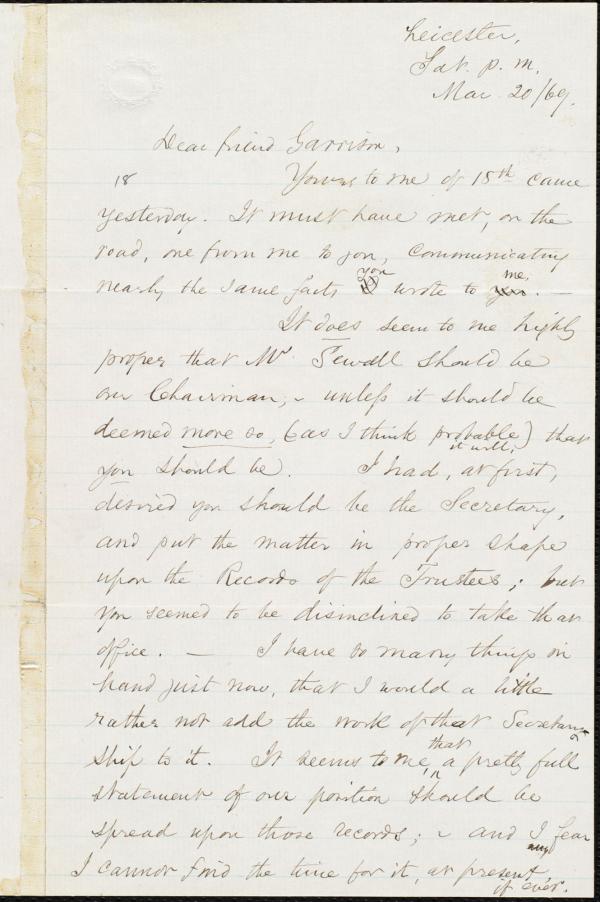 Leicester,
Sat. p. m.
Mar 20/69.
Dear friend Garrison,
18
Yours to me of 15th came
yesterday. It must have met, on the
road, one from me to you, communicating
nearly the same facts you wrote to me. —
It does seem to me highly
proper that Mr. Sewall should be
our Chairman, - unless it should be
deemed more so, (as I think probable it will,) that
you should be. I had, at first,
desired you should be the Secretary,
and put the matter in proper shape
upon the Records of the Trustees; but
you seemed to be disinclined to take that
office. — I have so many things on
hand just now, that I would a little
rather not add the work of that Secretary
ship to it. It seems to me, that a pretty full
statement of our position should be
spread upon those records; - and I fear
I cannot find the time for it, at present,
if ever.